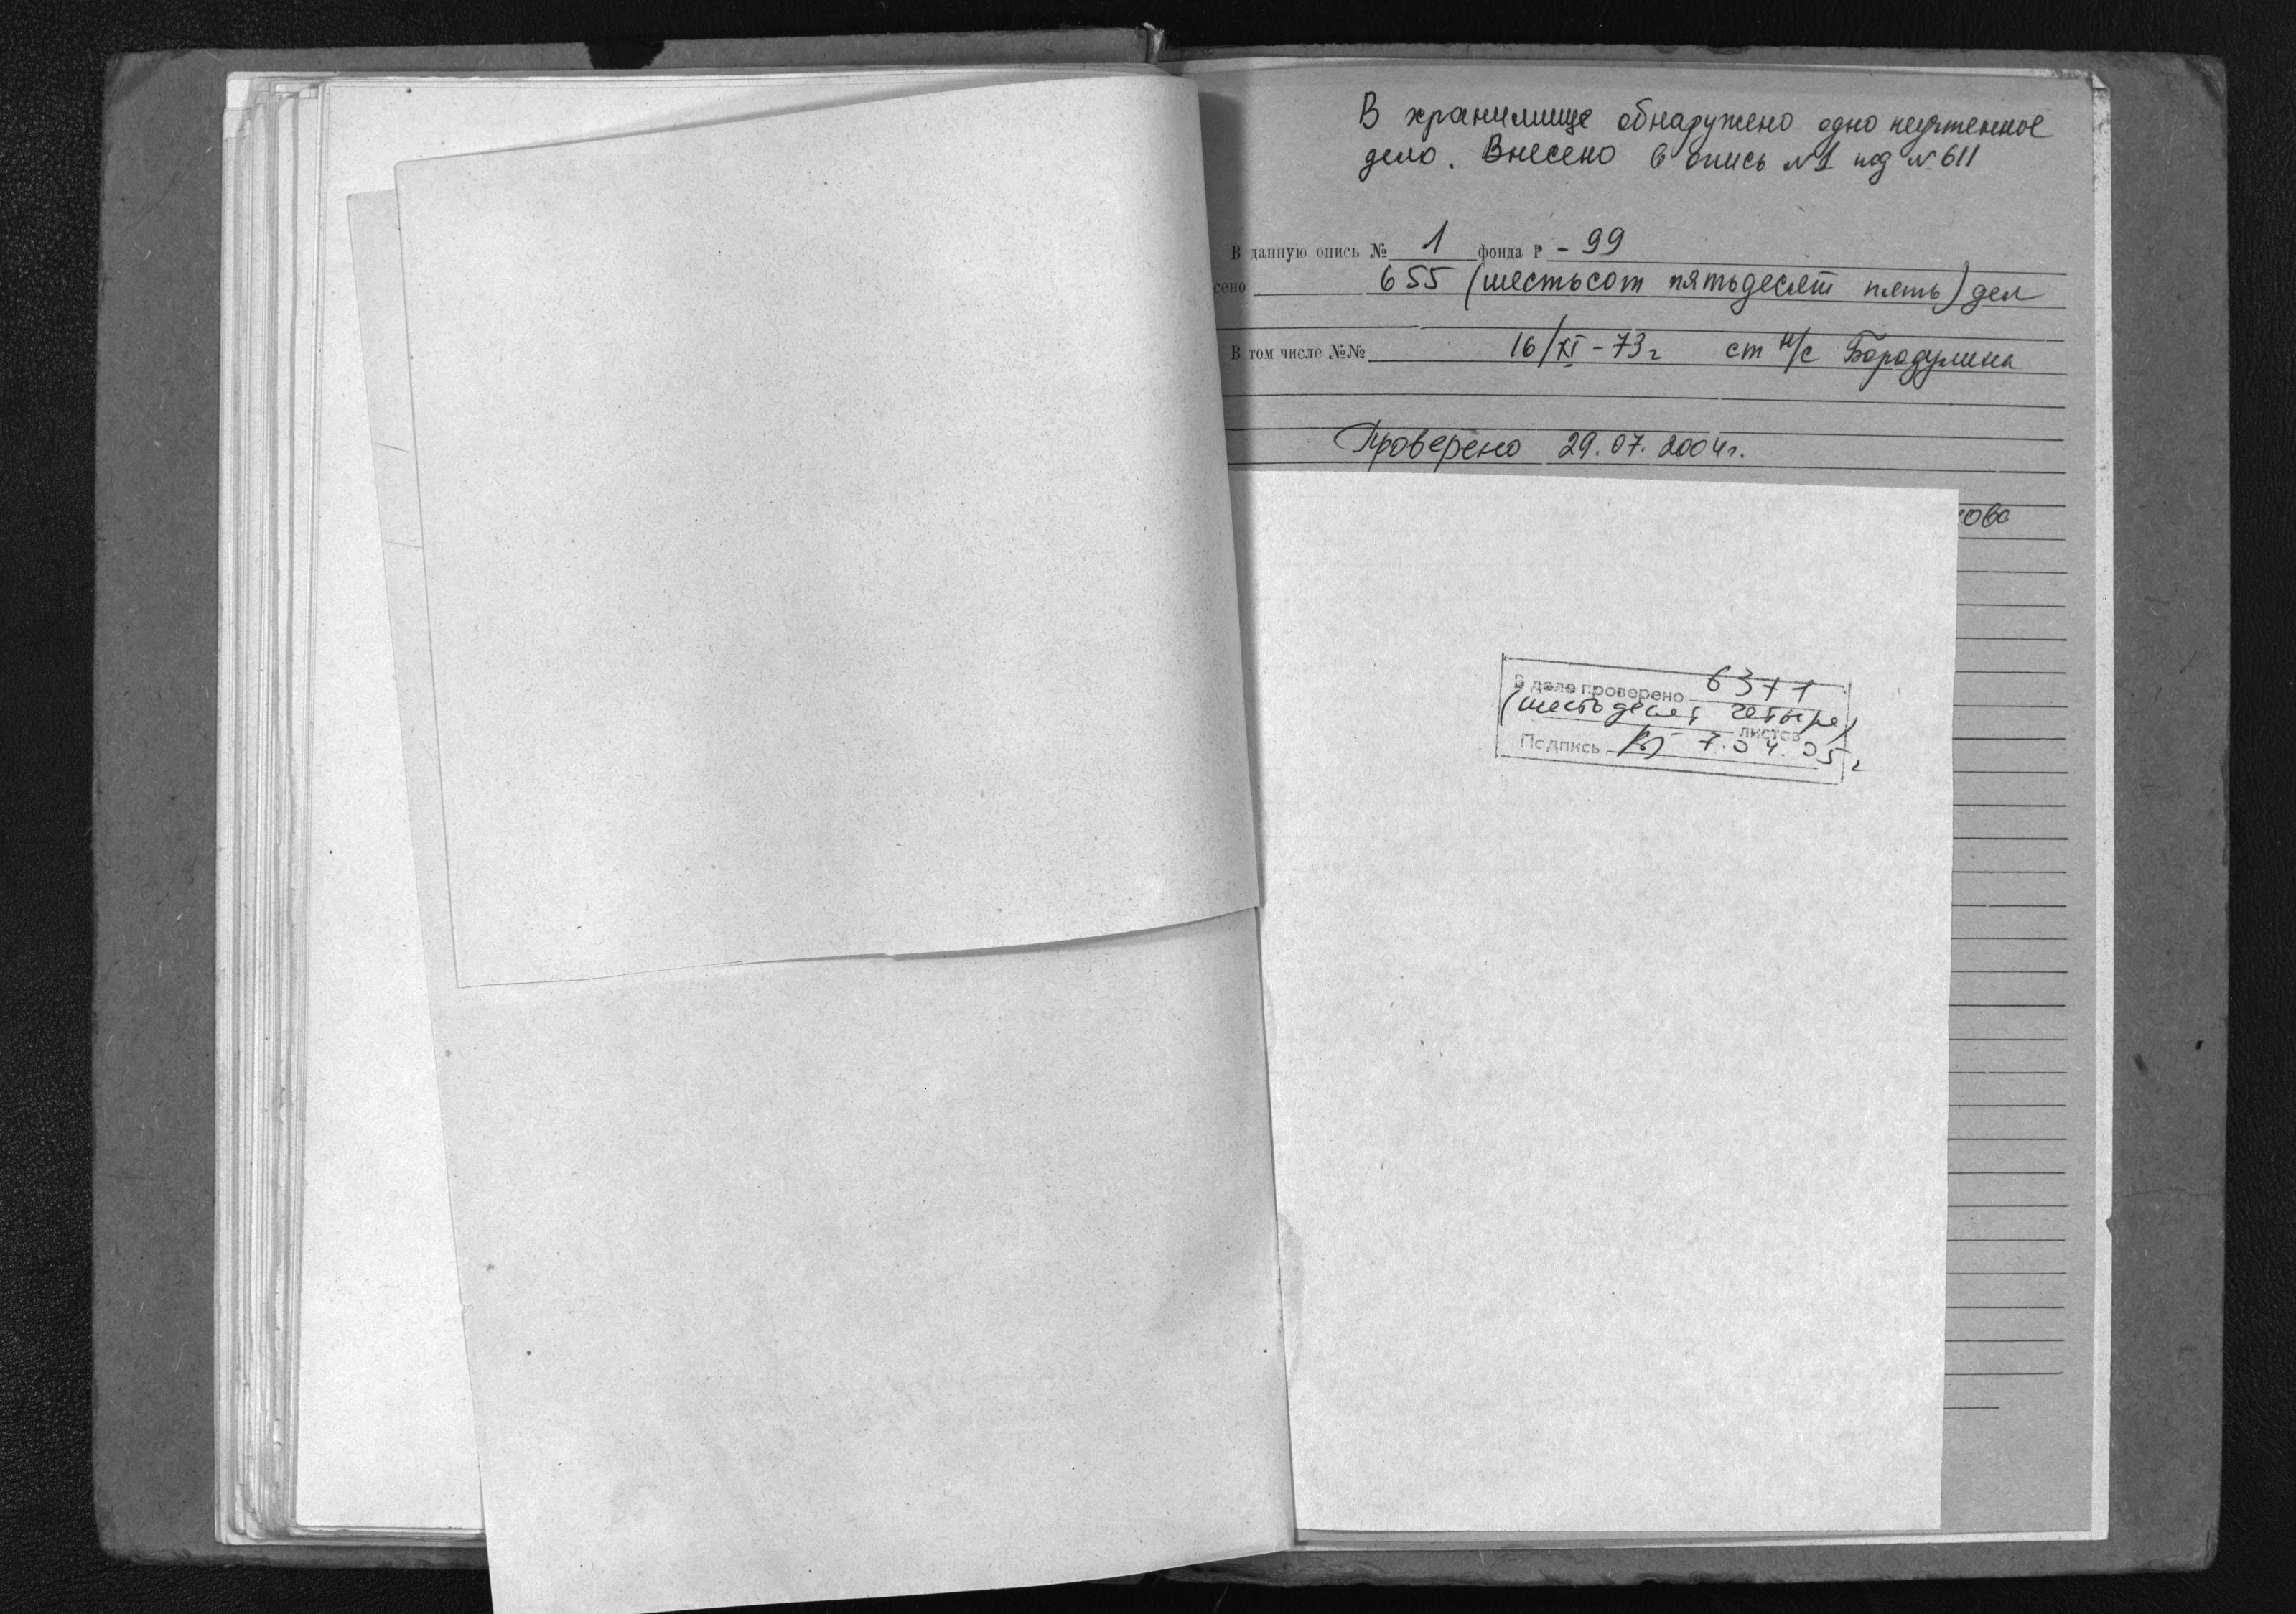 В хранилище обнаружено одно неучтенное
дело. Внесено в опись №1 под №611
В данную опись № 1 фонда Р - 99
сено 655 (шестьсот пятьдесят пять) дел
В том числе №№ 16/XI - 73 г ст н/с Бородулина
Проверено 29.07.2004г.
ова
В деле проверено 63+1
(шестьдесят четыре)
листов
Подпись 7.04.05 г